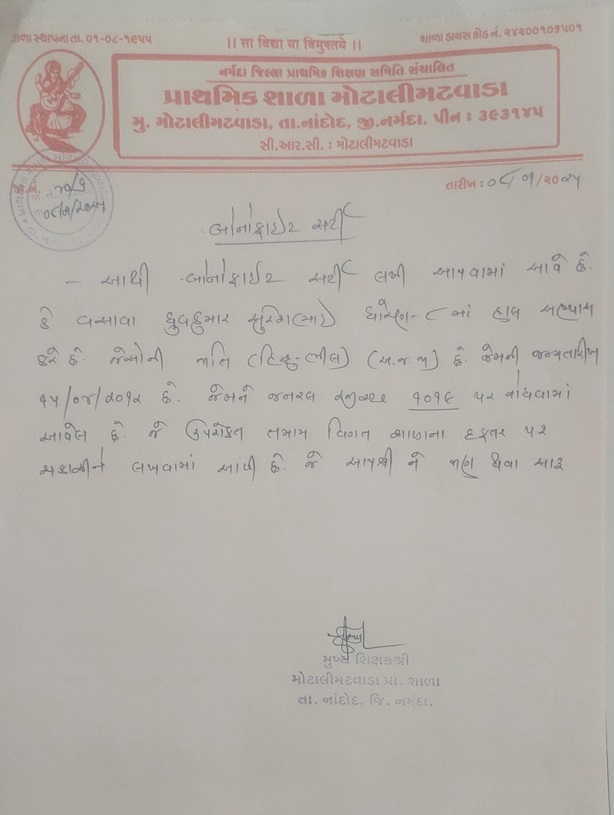 શાળા સ્થાપના તા. ૦૧-૦૮-૧૯૫૫ ।। સા વિદ્યા યા વિમુક્તયે ।। શાળા ડાયસ કોડ નં. ૨૪૨૦૦૧૦૬૫૦૧
નર્મદા જિલ્લા પ્રાથમિક શિક્ષણ સમિતિ સંચાલિત
પ્રાથમિક શાળા મોટાલીમટવાડા
મુ. મોટાલીમટવાંડા, તા.નાંદોદ, જી.નર્મદા. પીન : ૩૯૩૧૪૫
સી.આર.સી. : મોટાલીમટવાડા
તારીખ : ૦૮/૦૧/૨૦૨૫
બોનોફાઇટ સર્ટી
- આથી બોનોફાઇટ સર્ટી લખી આપવામાં આવે છે.
કે વસાવા ધ્રુવકુમાર ધોરણ-૮ માં હાલ અભ્યાસ
કરે છે. જેઓની જાતિ (હિન્દુ-ભીલ) (અ.જ.જા) છે. જેમની જન્મતારીખ
૧૫/૦૪/૨૦૧૨ છે. જેમને જનરલ રજીસ્ટર ૧૦૧૯ પર નોંધવામાં
આવેલ છે. જે ઉપરોક્ત તમામ વિગત શાળાના દફતર પર
ચકાસીને લખવામાં આપી છે. જે આપશ્રી ને જાણ થવા સારૂ
મુખ્ય શિક્ષકશ્રી
મોટાલીમટવાડા પ્રા. શાળા
તા. નાંદોદ, જિ. નર્મદા.